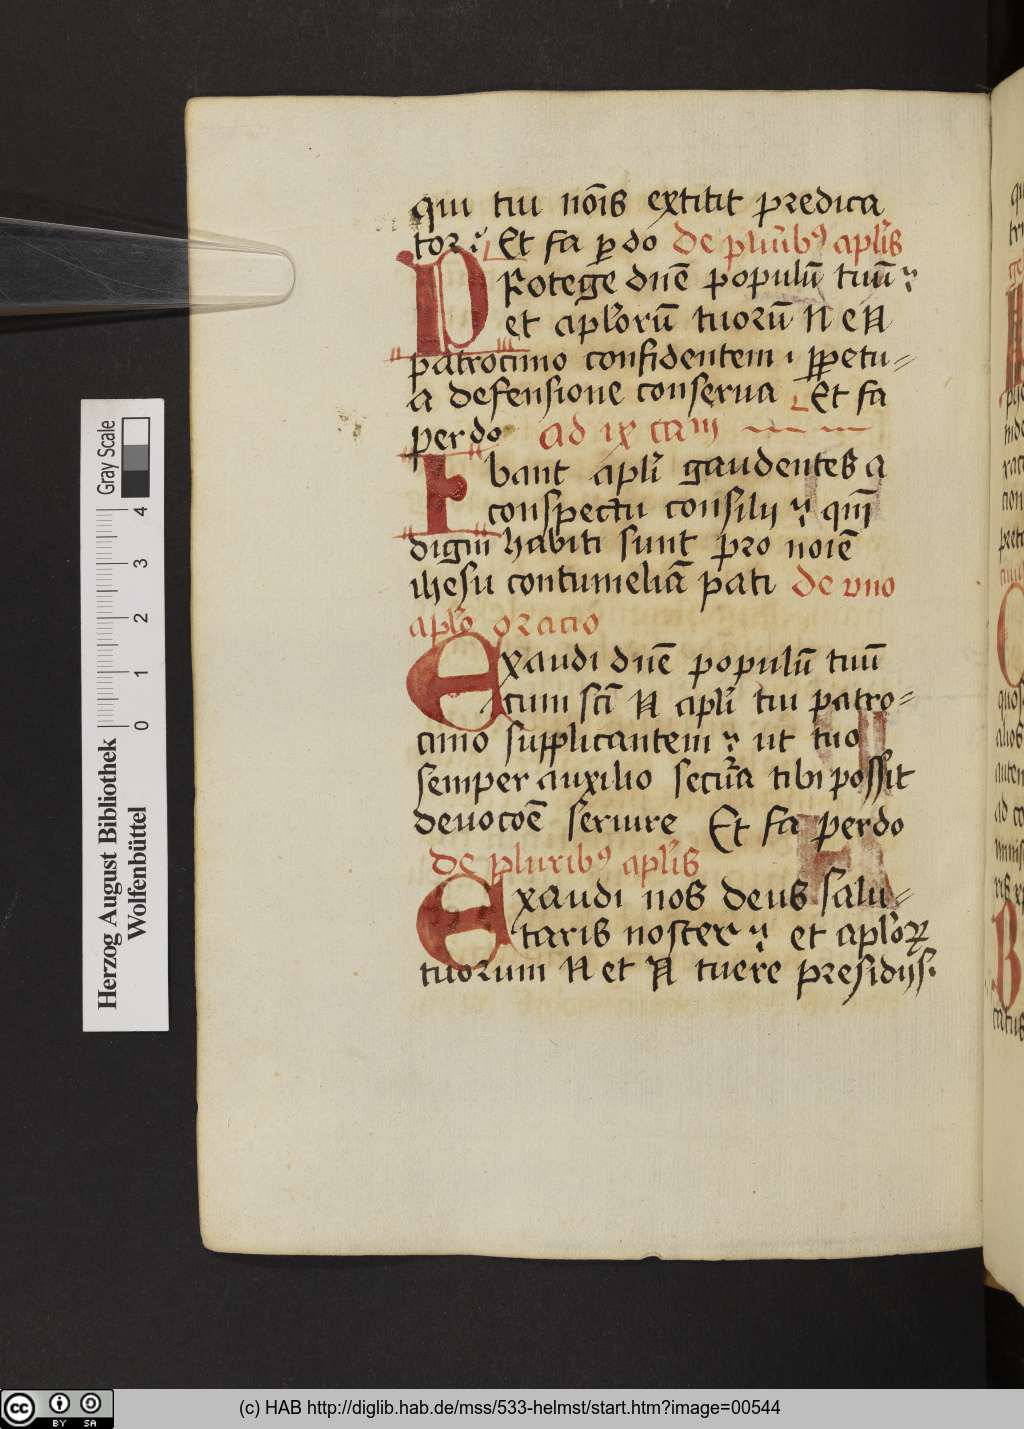 qui tui nōis extitit predica
tor : Et fa ꝑ do de plurib⁹ aplīs
Protege dnē populū tuū
et aplorū tuorū N e N
patrocinio confidentem ꝑpetu=
a defensione conserua Et fa
perdo ad ix cam
Ibant aplī gaudentes a
conspectu consilij qm̄
digni habiti sunt pro noiē
ihesu contumeliā pati de vno
aplo oracio
Exaudi dnē populū tuū
cum scī N aplī tui patro=
cinio supplicantem ut tuo
semper auxilio secura tibi possit
deuocoē seruire Et fa perdo
de plurib⁹ aplīs
Exaudi nos deus salu=
taris noster et aploꝝ
tuorum N et N tuere presidijs.
Gray Scale
0 1 2 3 4
Herzog August Bibliothek
Wolfenbüttel
cc BY SA
(c) HAB http://diglib.hab.de/mss/533-helmst/start.htm?image=00544